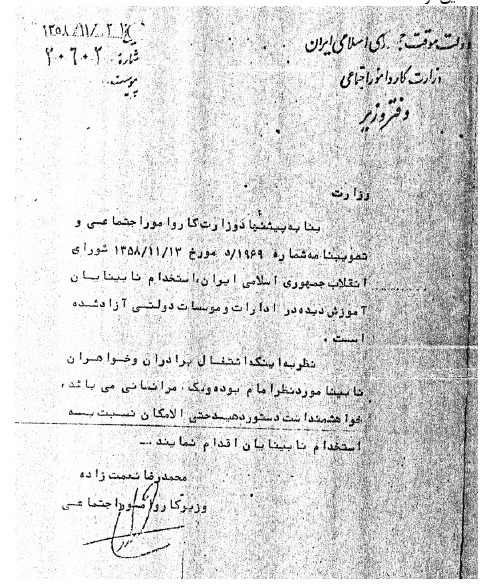 تاریخ ۱۳۵۸/۱۱/۲۱
شماره ۲۰۶۰۲
پیوست
دولت موقت جمهوری اسلامی ایران
وزارت کار و امور اجتماعی
دفتر وزیر
وزارت
بنا به پیشنهاد وزارت کار و امور اجتماعی و
تصویبنامه شماره ۱۹۶۹/د مورخ ۱۳۵۸/۱۱/۱۳ شورای
انقلاب جمهوری اسلامی ایران، استخدام نابینایان
آموزش دیده در ادارات و موسسات دولتی آزاد شده
است .
نظر به اینکه اشتغال برادران و خواهران
نابینا مورد نظر امام بوده و یک امر انسانی می باشد،
خواهشمند است دستور دهید حتی الامکان نسبت به
استخدام نابینایان اقدام نمایند ...
محمدرضا نعمت زاده
وزیر کار و امور اجتماعی